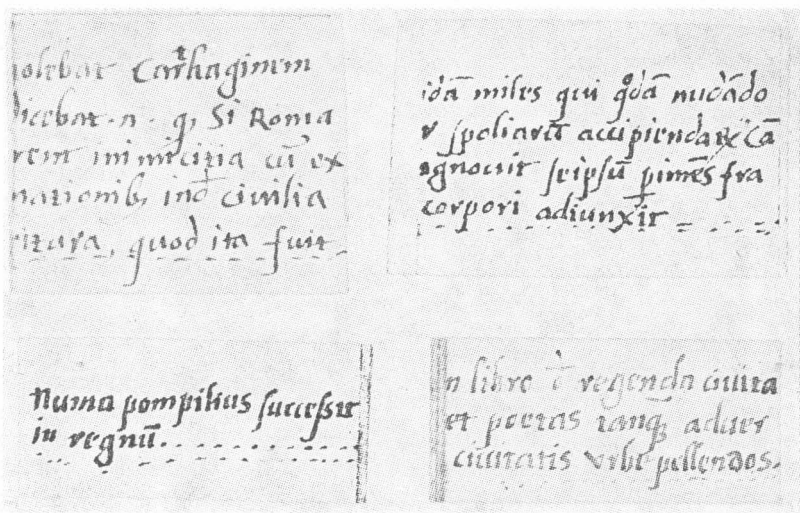 olebat Carthaginem
dicebat · n · q, Si Roma
rent inimicitia cū ex
nationib, ind civilia
ritura, quod ita fuit
idā miles qui qdā nudādo
r spoliavit accipienda
agnovit seipsū pimēs fra
corpori adiunxit
Numa pompilius successit
in regnū.
n libro regenda civita
et poetas tanq; aduer
civitatis vrbe pellendos.